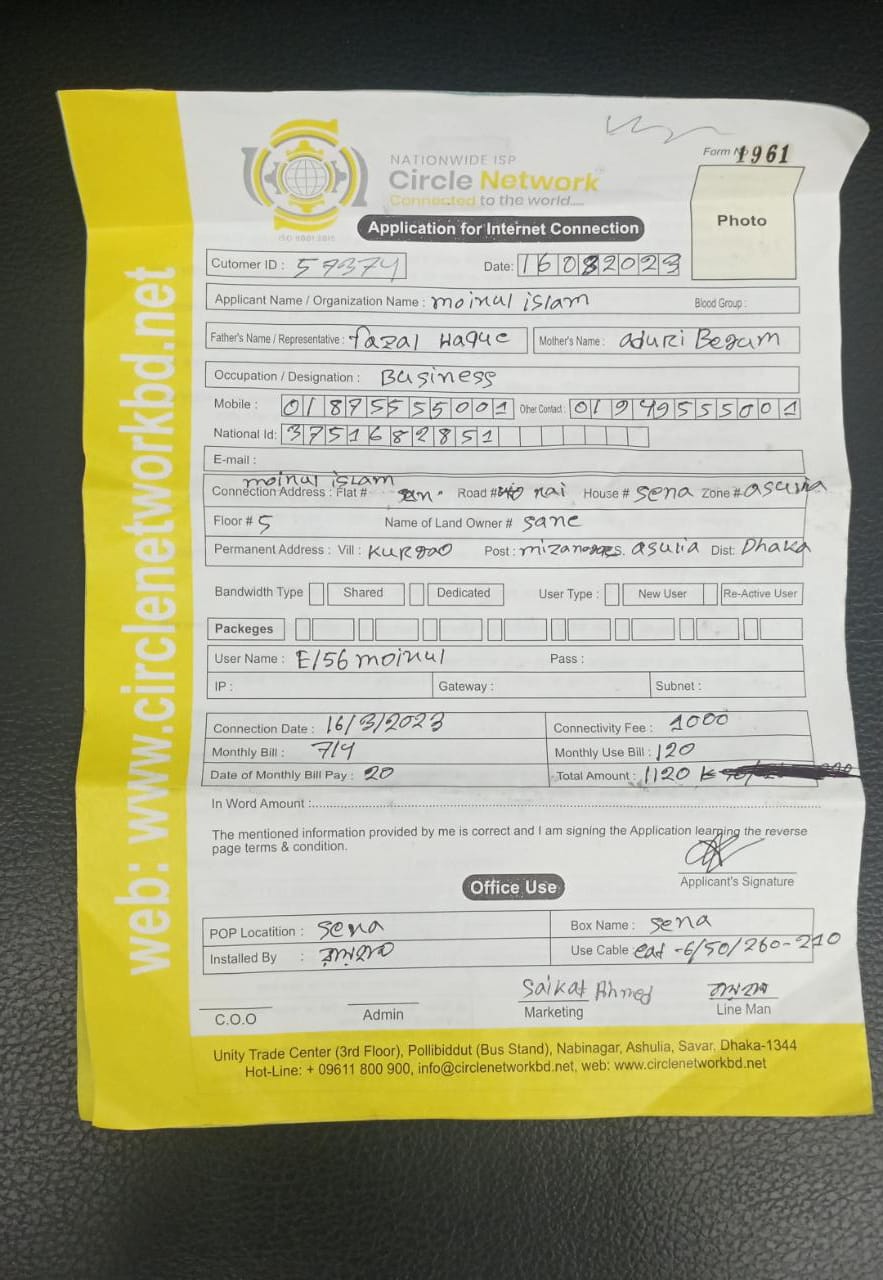 Form No 1961
NATIONWIDE ISP
Circle Network
Connected to the world.....
ISO 9001:2015
Application for Internet Connection
Photo
Cutomer ID : 57374 Date: 16 08 2023
Applicant Name / Organization Name : moinul islam Blood Group :
Father's Name / Representative : fazal Haque Mother's Name : aduri Begum
Occupation / Designation : Business
Mobile : 01875555001 Other Contact : 01949555001
National Id: 3751682851
E-mail :
moinul islam
Connection Address : Flat # Road # nai House # sena Zone # asulia
Floor # 5 Name of Land Owner # sane
Permanent Address : Vill : Kurgao Post : asulia Dist: Dhaka
Bandwidth Type Shared Dedicated User Type : New User Re-Active User
Packeges
User Name : E/56 moinul Pass :
IP : Gateway : Subnet :
Connection Date : 16/3/2023 Connectivity Fee : 1000
Monthly Bill : 714 Monthly Use Bill : 120
Date of Monthly Bill Pay : 20 Total Amount : 1120
In Word Amount :
The mentioned information provided by me is correct and I am signing the Application learning the reverse
page terms & condition.
Applicant's Signature
Office Use
POP Locatition : sena Box Name : sena
Installed By : Use Cable : cat -6/50/260-210
Saikat Ahmed
C.O.O Admin Marketing Line Man
Unity Trade Center (3rd Floor), Pollibiddut (Bus Stand), Nabinagar, Ashulia, Savar. Dhaka-1344
Hot-Line: + 09611 800 900, info@circlenetworkbd.net, web: www.circlenetworkbd.net
web: www.circlenetworkbd.net